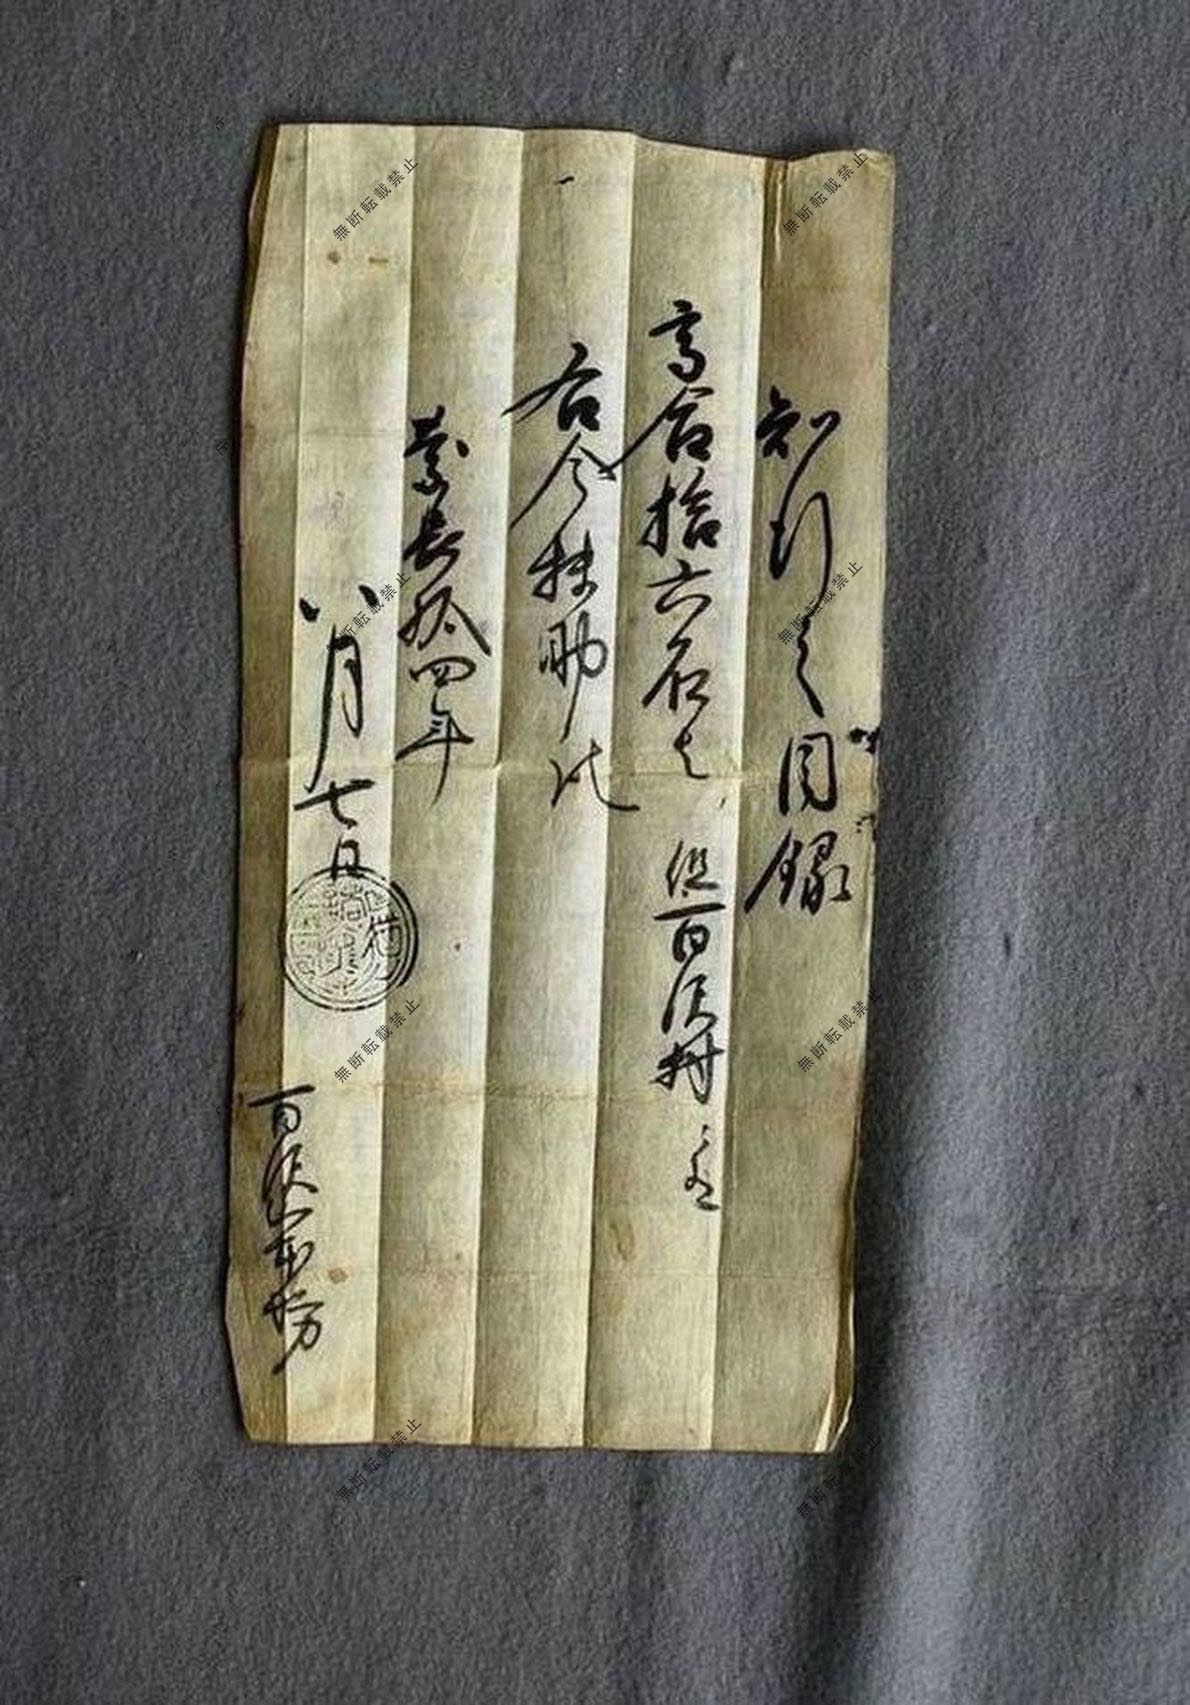 知行之目録
高合拾六石七 従百沢村之内
右令扶助訖
慶長拾四年
八月七日
百沢
無断転載禁止
無断転載禁止
無断転載禁止
無断転載禁止
無断転載禁止
無断転載禁止
無断転載禁止
無断転載禁止